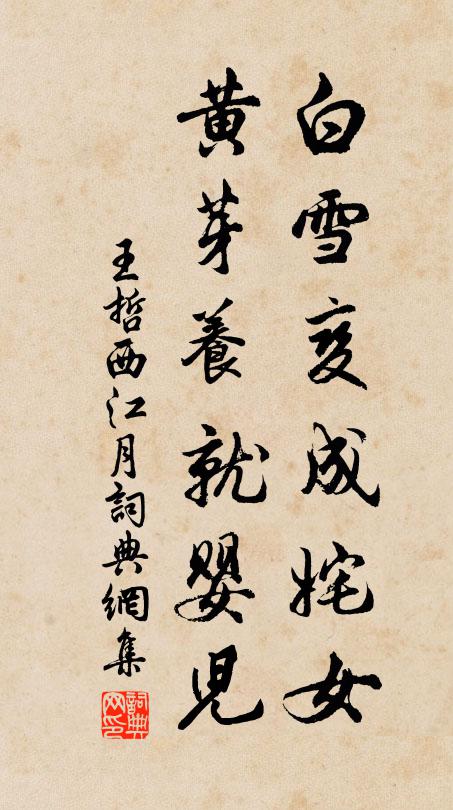 白雪变成姹女
黄芽養就嬰児
王哲西江月詞典網集
詞典网印